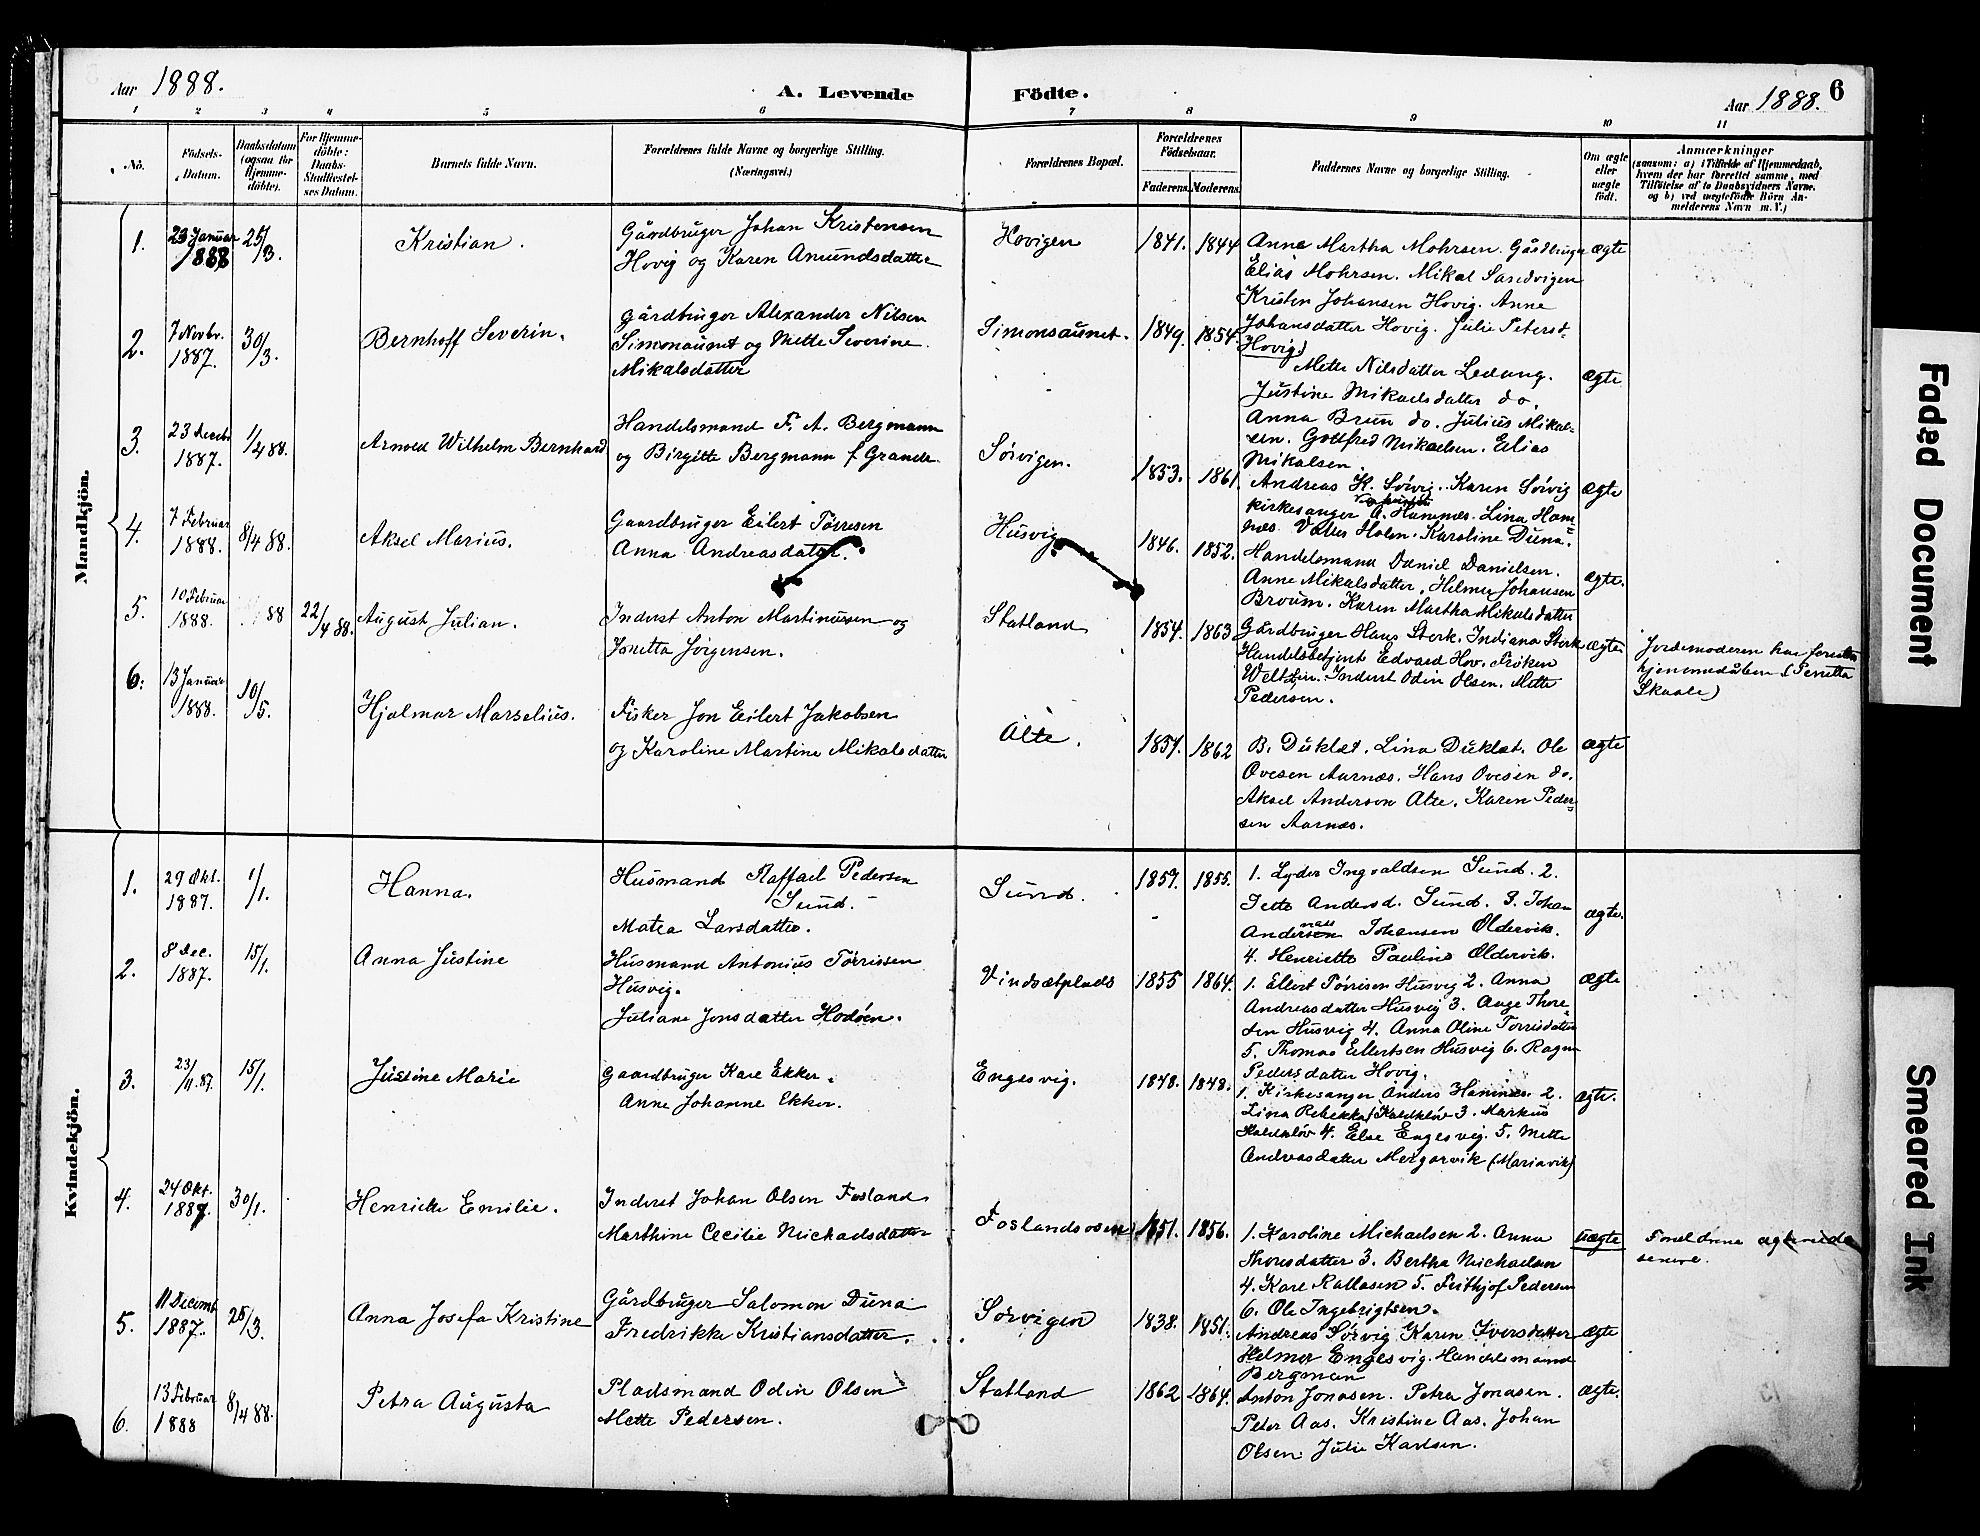 Aar 1888.
A. Levende
Födte.
Aar 1888.
6
1 2 3 4 5 6 7 8 9 10 11
No.
Födsels-
Datum.
Daabsdatum
(ogsaa for
Hjemme-
döbte).
For Hjemme-
döbte:
Daabs-
Stadfæstel-
ses Datum.
Barnets fulde Navn.
Forældrenes fulde Navne og borgerlige Stilling.
(Næringsvei.)
Forældrenes Bopæl.
Forældrenes
Födselsaar.
Faderens. Moderens.
Faddernes Navne og borgerlige Stilling.
Om ægte
eller
uægte
födt.
Anmærkninger
(saasom: a) i Tilfælde af Hjemmedaab,
hvem der har forrettet samme, med
Tilföielse af to Daabsvidners Navne,
og b) ved uægtefödte Börn An-
melderens Navn m. V.)
Mandkjön.
1.
23 Januar
1888
25/3.
Kristian.
Gårdbruger Johan Kristensen
Hovig og Karen Amundsdatter
Hovigen
1841. 1844
Anna Martha Mohrsen. Gårdbruger
Elias Mohrsen. Mikal Sandvigen
Kristen Johansen Hovig. Anne
Johansdatter Hovig. Julie Petersd.
Hovig.
ægte
2.
7 Novbr.
1887.
30/3.
Bernhoff Severin.
Gårdbruger Alexander Nilsen
Simonaunet og Mette Severine
Mikalsdatter
Simonsaunet.
1849. 1854.
Mette Nilsdatter Ledang.
Justine Mikaelsdatter do.
Anna Brun do. Julius Mikal-
sen. Gottfred Mikaelsen. Elias
Mikalsen.
ægte
3.
23 decbr
1887.
1/4 88.
Arnold Wilhelm Bernhard
Handelsmand F. A. Bergmann
og Birgitte Bergmann f Grande
Sörvigen.
1853. 1861.
Andreas H. Sörvig. Karen Sörvig
kirkesanger A. Hamnes. Lina Ham
nes. Holm. Karoline Duna.
ægte
4.
7 Februar
1888.
8/4 88.
Aksel Marius.
Gaardbruger Eilert Törresen
Anna Andreasdatter.
Husvig
1846. 1852.
Handelsmand Daniel Danielsen.
Anne Mikalsdatter, Helmer Johansen
Broum. Karen Martha Mikalsdatter
ægte.
5.
10 Februar
1888.
88
22/4 88.
August Julian.
Inderst Anton Martinussen og
Jonetta Jörgensen.
Statland
1854. 1863
Gårdbruger Hans Sterk. Indiana Sterk
Handelsbetjent Edvard Hov. Fröken
Inderst Odin Olsen. Mette
Pedersen.
ægte
Jordemoderen har forrettet
hjemmedåben (Penetta
Skaale)
6.
13 Januar
1888.
10/5.
Hjalmar Marselius.
Fisker Jon Eilert Jakobsen
og Karoline Martine Mikalsdatter
Alte.
1857. 1862
B. Duklæt. Lina Duklæt. Ole
Ovesen Aarnæs. Hans Ovesen do.
Aksel Anderson Alte. Karen Peder-
sen Aarnæs.
ægte
Kvindekjön.
1.
29 Okt.
1887.
1/1.
Hanna.
Husmand Raffael Pedersen
Sund.
Matea Larsdatter.
Sund.
1859. 1855.
1. Lyder Ingvaldsen Sund. 2.
Jette Andersd. Sund. 3. Johan
Andersen Johansen Oldervik.
4. Henriette Pauline Oldervik.
ægte.
2.
8 Dec.
1887.
15/1.
Anna Justine
Husmand Antonius Törrissen
Husvig.
Juliane Jonsdatter Hodöen.
Vindsætplads
1855 1864.
1. Eilert Törrisen Husvig 2. Anna
Andreasdatter Husvig 3. Auge Thore
Husvig 4. Anna Oline Torrisdatter
5. Thomas Eilertsen Husvig 6. Ragna
Pedersdatter Hovig.
ægte
3.
23/11.87.
15/1.
Justine Marie
Gaardbruger Kare Ekker.
Anne Johanne Ekker.
Engesvig.
1848. 1848.
1. Kirkesanger Anders Hamnes. 2.
Lina Rebekka Kaldklöv 3. Markus
Kaldklöv 4. Else Engesvig. 5. Mette
Andreasdatter Mergarvik (Mariavik)
ægte.
4.
24 Okt.
1887.
30/1.
Henriette Emilie.
Inderst Johan Olsen Fosland
Marthine Cecilie Michaelsdatter
Foslandsosen
1851. 1856.
1. Karoline Michaelsen 2. Anna
Thoresdatter 3. Bertha Michaelsen
4. Kare Rallasen 5. Frithjof Pedersen
6. Ole Ingebrigtsen.
uægte
Forældrene agteviede
senere.
5.
11 Decemb
1887.
25/3.
Anna Josefa Kristine
Gårdbruger Salomon Duna
Fredrikke Kristiansdatter.
Sörvigen
1838. 1851.
Andreas Sörvig. Karen Iversdatter
Helmer Engesvig. Handelsmand
Bergman
ægte
6.
13 Februar
1888
8/4 88.
Petra Augusta
Pladsmand Odin Olsen
Mette Pedersen.
Statland
1862 1864.
Anton Jonasen. Petra Jonasen.
Peter Aas. Kristine Aas. Johan
Olsen. Julie Karlsen.
ægte.
Faded Document
Smeared Ink